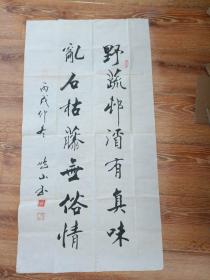 野蔬邨酒有真味
亂石枯藤無俗情
丙戌仲冬
山書